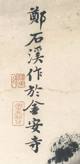 鄭石溪作於金安寺